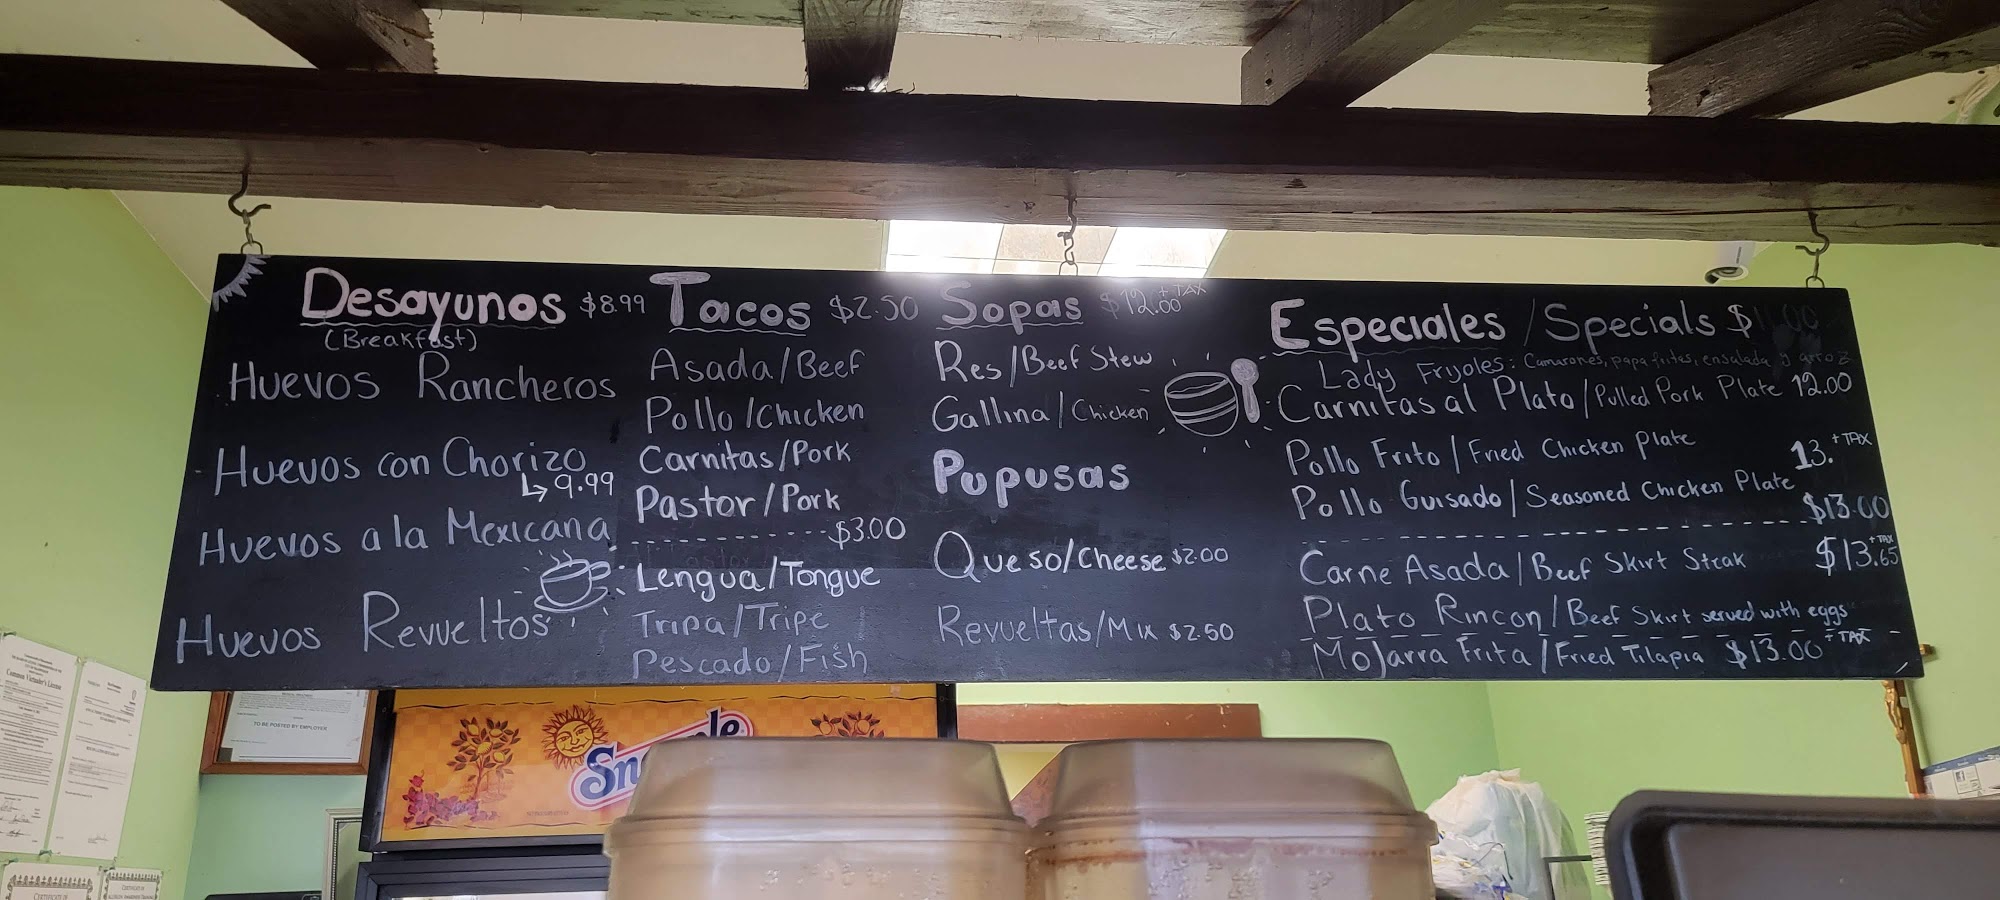 Desayunos $8.99
(Breakfast)
Huevos Rancheros
Huevos con Chorizo
↳ 9.99
Huevos a la Mexicana
Huevos Revueltos
Tacos $2.50
Asada/Beef
Pollo/Chicken
Carnitas/Pork
Pastor/Pork
----------$3.00
Lengua/Tongue
Tripa/Tripe
Pescado/Fish
Sopas $12.00 + TAX
Res/Beef Stew
Gallina/Chicken
Pupusas
Queso/Cheese $2.00
Revueltas/Mix $2.50
Especiales/Specials $11.00
Lady Fryoles: Camarones, papa fritas, ensalada y arroz
Carnitas al Plato/Pulled Pork Plate 12.00
Pollo Frito/Fried Chicken plate 13. + TAX
Pollo Guisado/Seasoned Chicken Plate
$13.00
Carne Asada/Beef Skirt Steak $13.65 + TAX
Plato Rincon/Beef Skirt served with eggs
Mojarra Frita/Fried Tilapia $13.00 + TAX
Common Victualer's License
TO BE POSTED BY EMPLOYER